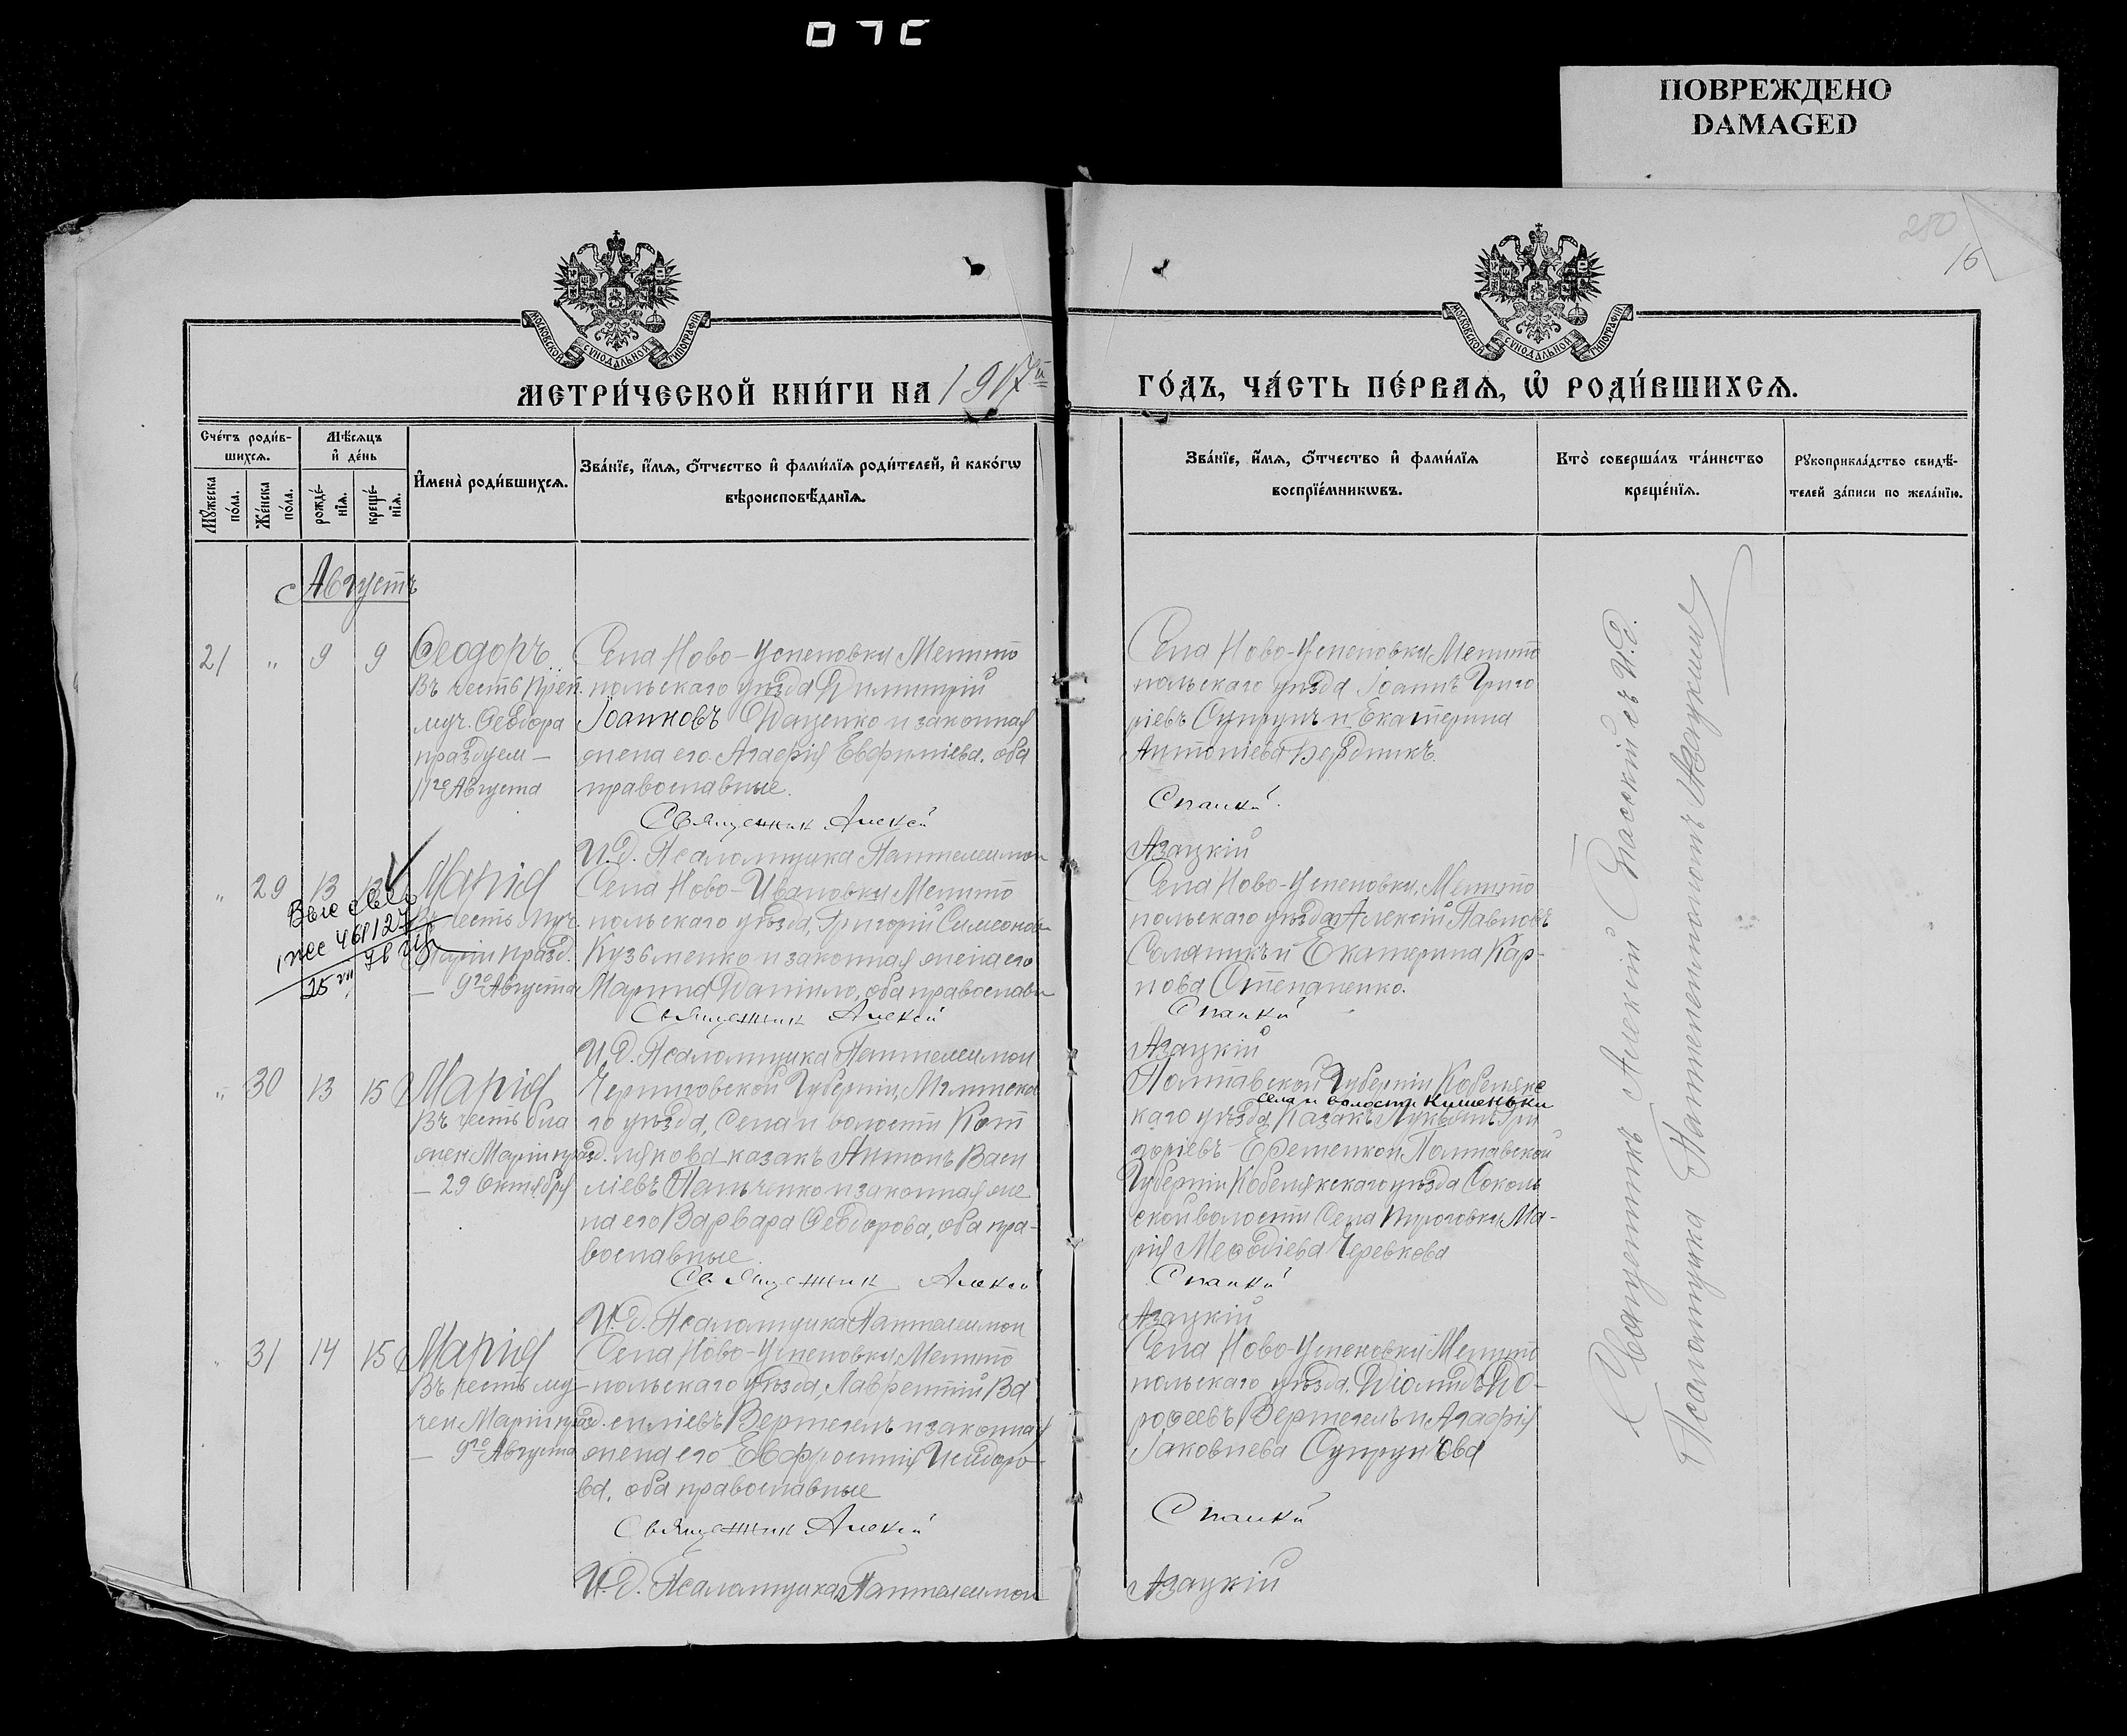 ПОВРЕЖДЕНО
DAMAGED
250
16
МОСКОВСКОЙ СѴНОДАЛЬНОЙ ТИПОГРАФІИ
МОСКОВСКОЙ СѴНОДАЛЬНОЙ ТИПОГРАФІИ
МЕТРИ́ЧЕСКОЙ КНИ́ГИ НА 1917й
ГО́ДЪ, ЧА́СТЬ ПЕ́РВАѦ, Ѡ҆ РОДИ́ВШИХСѦ.
Сче́тъ роди́в-
шихсѧ.
Мꙋ́жеска по́ла.
Же́нска по́ла.
Мѣ́сѧцъ
и҆ де́нь
рожде́-
нїѧ.
креще́-
нїѧ.
И҆мена̀ роди́вшихсѧ.
Зва́нїе, и҆́мѧ, ѻ҆́тчество и҆ фами́лїѧ роди́телей, и҆ како́гѡ
вѣроисповѣ́данїѧ.
Зва́нїе, и҆́мѧ, ѻ҆́тчество и҆ фами́лїѧ
воспрїе́мникѡвъ.
Кто̀ соверша́лъ та́инство
креще́нїѧ.
Рꙋкоприкла́дство свидѣ́-
телей за́писи по жела́нїю.
Августъ
21 " 9 9
Ѳеодоръ
Въ честь преп.
муч. Ѳеодора
празднуем –
11го Августа
Села Ново-Успеновки Мелито
польскаго уѣзда Димитрій
Іоанновъ Даценко и законная
жена его Агафія Евфиміева. оба
православные.
Священник Алексей
И.д. Псаломщика Пантелеимон
Села Ново-Успеновки Мелито
польскаго уѣзда Іоаннъ Григо
ріевъ Супрунъ и Екатерина
Антоніева Бердникъ.
Спаский.
Азацкій
" 29 13 13
Марія
Въ честь муч.
Маріи празд.
– 9го Августа
Села Ново-Ивановки Мелито
польскаго уѣзда, Григорій Симеонов
Кузьменко и законная жена его
Марина Данило, оба православн
Священник Алексей
И.д. Псаломщика Пантелеимон
Села Ново-Успеновки, Мелито
польскаго уѣзда Алексій Павловъ
Соляникъ и Екатерина Кар-
пова Степаненко.
Спаский
Азацкій
" 30 13 15
Марія
Въ честь бла
жен Маріи празд.
– 29 Октября
Черниговской Губерніи, Мглинска
го уѣзда, Села и волости Кот
лякова казакъ Антонъ Васи
ліевъ Панченко и законная же
на его Варвара Ѳеодорова, оба пра-
вославные
Священник Алексей
И.д. Псаломщика Пантелеимон
Полтавской Губерніи Кобеляке
села и волости Кишеньки
каго уѣзда, Казакъ Лукьянъ Гри
горіевъ Еременко и Полтавской
Губерніи Кобелякскаго уѣзда Соколь
ской волости Села Марія
рія Меѳодіева Черевкова
Спаский
Азацкій
" 31 14 15
Марія
Въ честь му-
чен Маріи празд.
– 9го Августа
Села Ново-Успеновки, Мелито
польскаго уѣзда, Лаврентій Ва
силіевъ Вертегелъ и законная
жена его Евфросинія Исидоро-
ва, оба православные
Священник Алексей
И.д. Псаломщика Пантелеимон
Села Ново-Успеновки Мелито
польскаго уѣзда, Діомидъ До-
роѳеевъ Вертегелъ и Агафія
Іаковлева Супрунова
Спаский
Азацкій
Священникъ Алексій Спасскій съ И.д.
Псаломщика Пантелеимономъ Азацкимъ